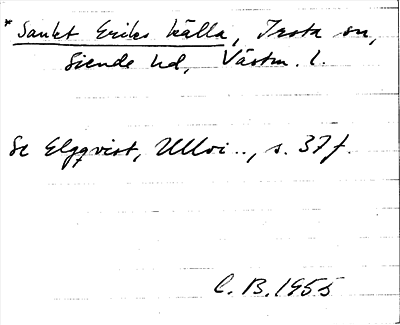 * Sankt Eriks källa, Irsta sn,
Siende hd, Västm. l.
Se Elgqvist, Ullvi .., s. 37 f.
C. B. 1955